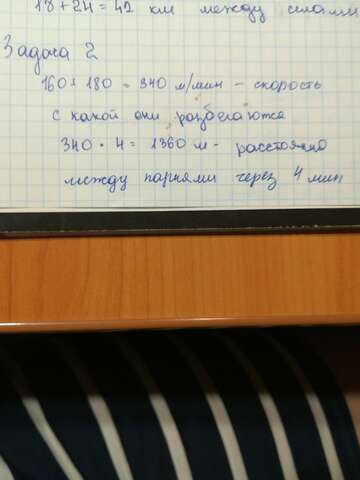 18 + 24 = 42 км между силами
Задача 2
160 + 180 = 340 м/мин - скорость
с какой они разбегаются
340 · 4 = 1360 м - расстояние
между парнями через 4 мин